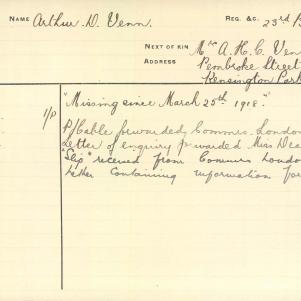 NAME Arthur D. Venn. REG. &C. 23rd/B
NEXT OF KIN Mrs A. H. C. Ven
ADDRESS Pembroke Street
Kensington Park
"Missing since March 25th 1918."
1/p P/Cable forwarded Commrs. London
Letter of enquiry forwarded Miss Dea
"Slip" received from Commrs London
letter containing information for